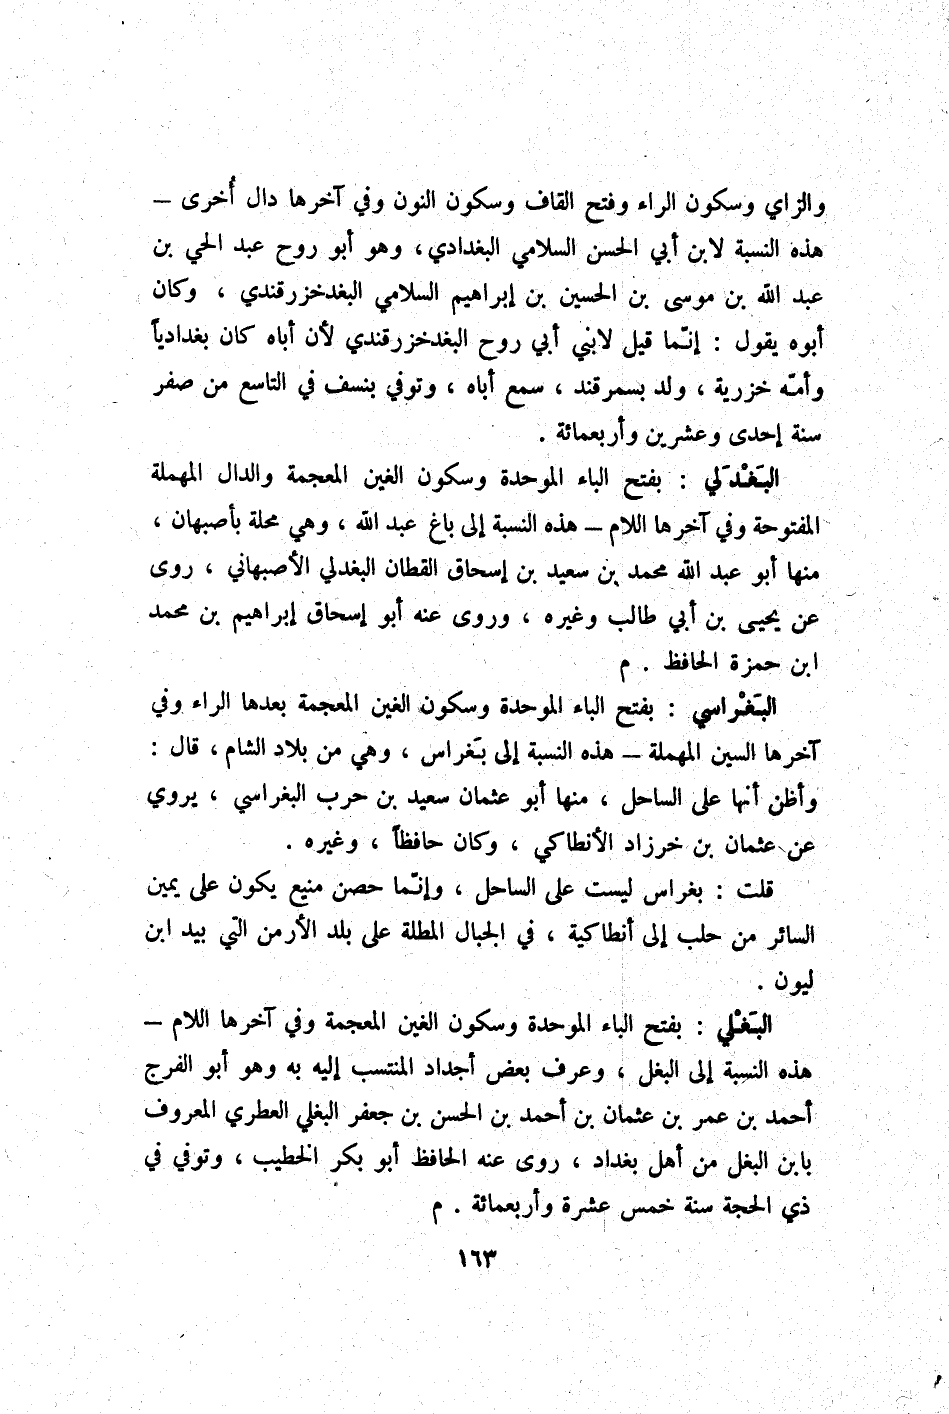 والزاي وسكون الراء وفتح القاف وسكون النون وفي آخرها دال أُخرى –
هذه النسبة لابن أبي الحسن السلامي البغدادي، وهو أبو روح عبد الحي بن
عبد الله بن موسى بن الحسين بن إبراهيم السلامي البغدخزرقندي ، وكان
أبوه يقول : إنّما قيل لابني أبي روح البغدخزرقندي لأن أباه كان بغدادياً
وأمّه خزرية ، ولد بسمرقند ، سمع أباه ، وتوفي بنسف في التاسع من صفر
سنة إحدى وعشرين وأربعمائة .
البَغْدَلي : بفتح الباء الموحدة وسكون الغين المعجمة والدال المهملة
المفتوحة وفي آخرها اللام – هذه النسبة إلى باغ عبد الله ، وهي محلة بأصبهان ،
منها أبو عبد الله محمد بن سعيد بن إسحاق القطان البغدلي الأصبهاني ، روى
عن يحيى بن أبي طالب وغيره ، وروى عنه أبو إسحاق إبراهيم بن محمد
ابن حمزة الحافظ . م
البَغْراسي : بفتح الباء الموحدة وسكون الغين المعجمة بعدها الراء وفي
آخرها السين المهملة – هذه النسبة إلى بَغراس ، وهي من بلاد الشام ، قال :
وأظن أنها على الساحل ، منها أبو عثمان سعيد بن حرب البغراسي ، يروي
عن عثمان بن خرزاد الأنطاكي ، وكان حافظاً ، وغيره .
قلت : بغراس ليست على الساحل ، وإنّما حصن منيع يكون على يمين
السائر من حلب إلى أنطاكية ، في الجبال المطلة على بلد الأرمن التي بيد ابن
ليون .
البَغْلي : بفتح الباء الموحدة وسكون الغين المعجمة وفي آخرها اللام –
هذه النسبة إلى البغل ، وعرف بعض أجداد المنتسب إليه به وهو أبو الفرج
أحمد بن عمر بن عثمان بن أحمد بن الحسن بن جعفر البغلي العطري المعروف
بابن البغل من أهل بغداد ، روى عنه الحافظ أبو بكر الخطيب ، وتوفي في
ذي الحجة سنة خمس عشرة وأربعمائة . م
١٦٣